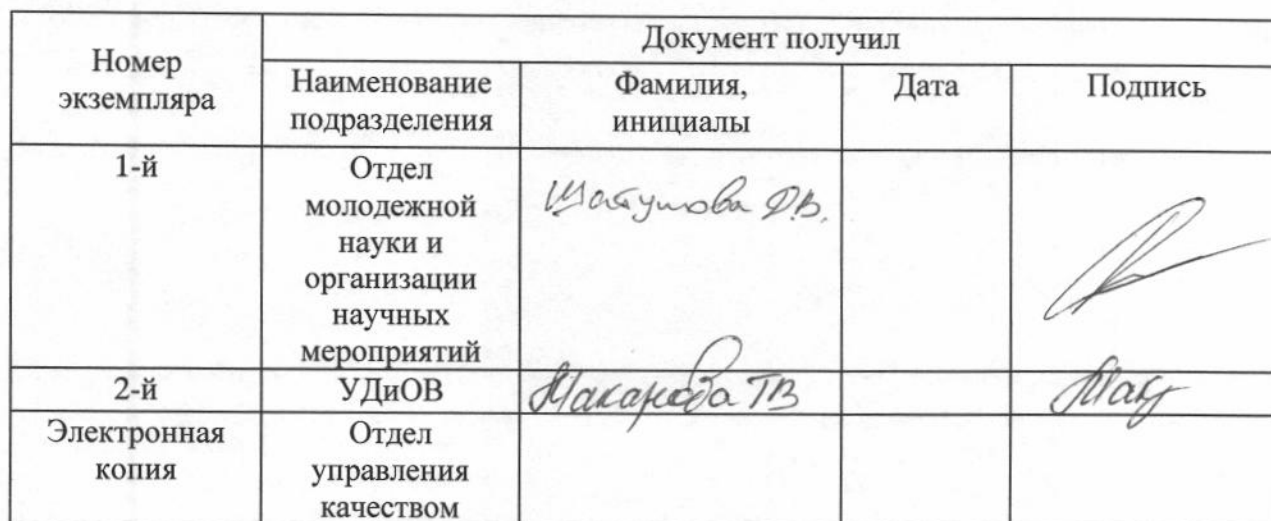 Номер
экземпляра
Документ получил
Наименование
подразделения
Фамилия,
инициалы
Дата
Подпись
1-й
Отдел
молодежной
науки и
организации
научных
мероприятий
2-й
УДиОВ
Макарова ТВ
Электронная
копия
Отдел
управления
качеством